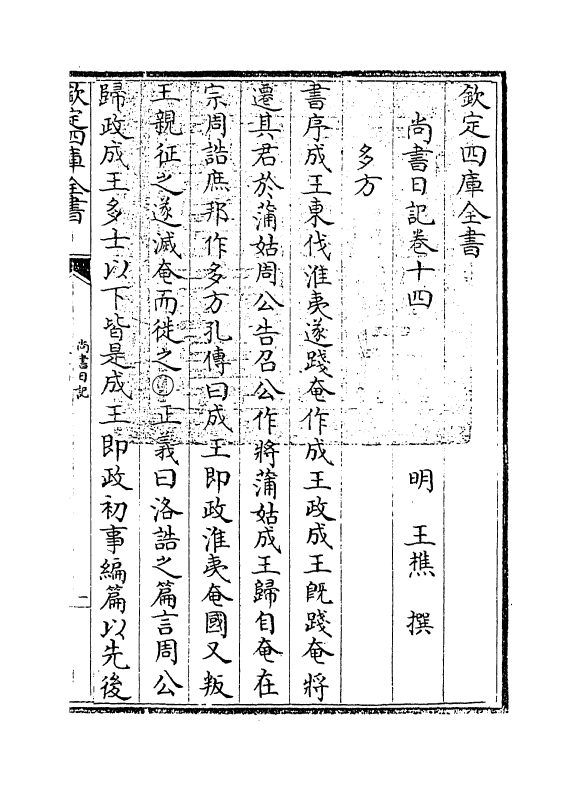 欽定四庫全書
尚書日記卷十四
明 王樵 撰
多方
書序成王東伐淮夷遂踐奄作成王政成王既踐奄將
遷其君於蒲姑周公告召公作將蒲姑成王歸自奄在
宗周誥庶邦作多方孔傳曰成王即政淮夷奄國又叛
王親征之遂滅奄而徙之正義曰洛誥之篇言周公
歸政成王多士以下皆是成王即政初事編篇以先後
欽定四庫全書
尚書日記
一